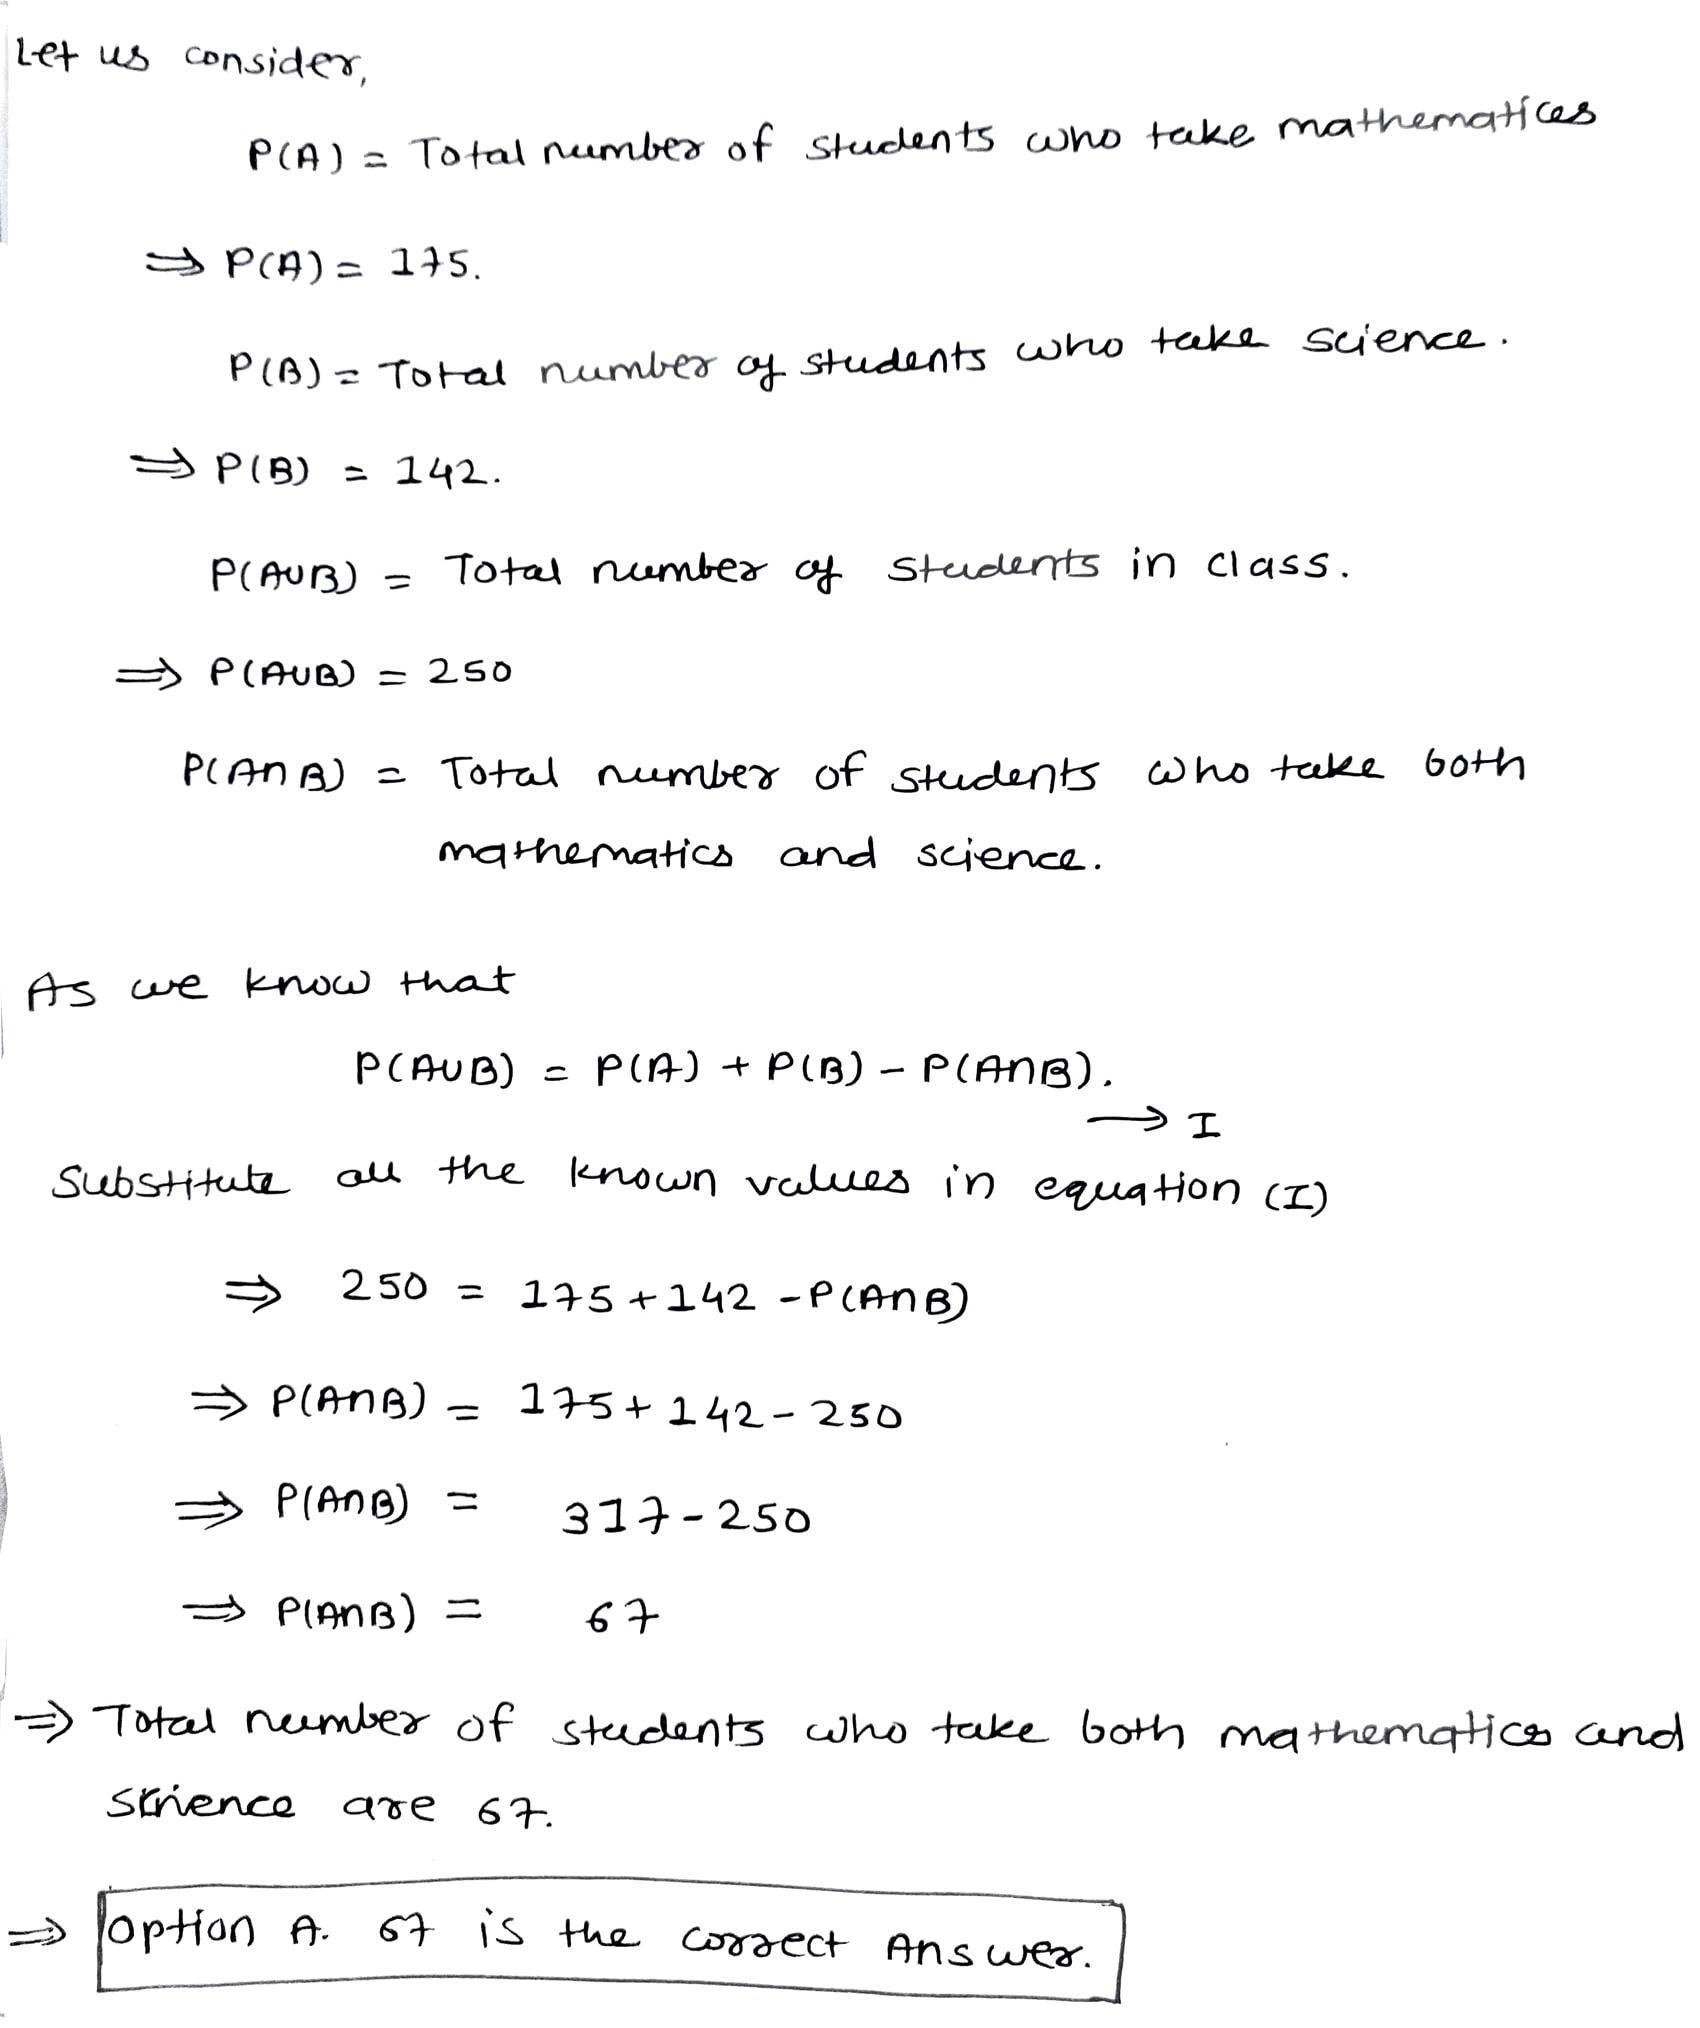 Let us consider,
P(A) = Total number of students who take mathematices
⇒ P(A) = 175.
P(B) = Total number of students who take science.
⇒ P(B) = 142.
P(A∪B) = Total number of students in class.
⇒ P(A∪B) = 250
P(A∩B) = Total number of students who take both
mathematics and science.
As we know that
P(A∪B) = P(A) + P(B) - P(A∩B).
→ I
Substitute all the known values in equation (I)
⇒ 250 = 175 + 142 - P(A∩B)
⇒ P(A∩B) = 175 + 142 - 250
⇒ P(A∩B) = 317 - 250
⇒ P(A∩B) = 67
⇒ Total number of students who take both mathematics and
science are 67.
⇒ Option A. 67 is the correct Answer.